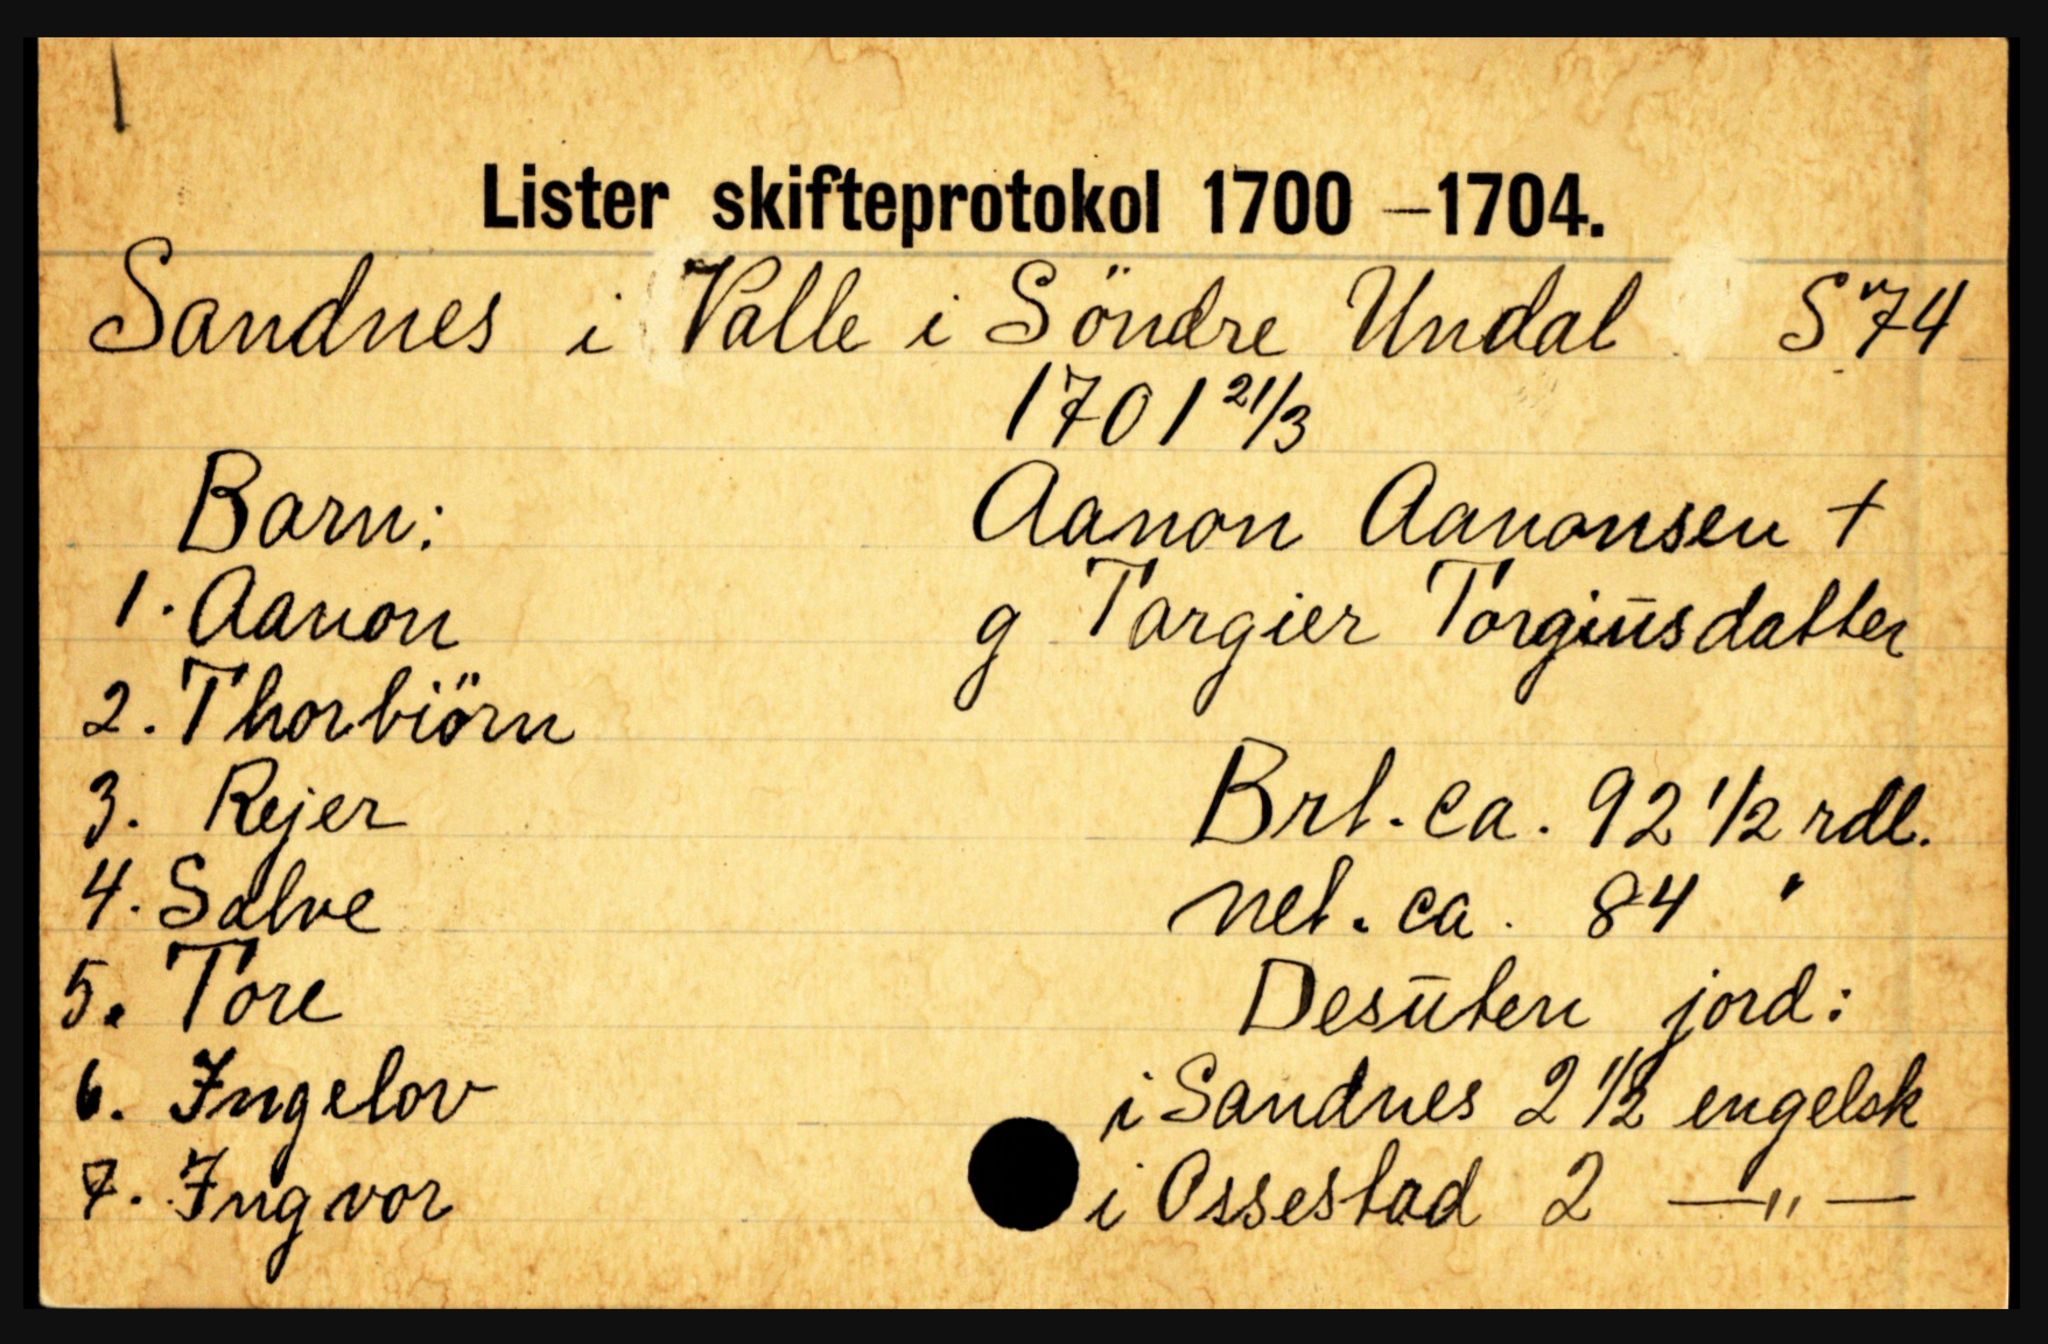 Lister skifteprotokol 1700 – 1704.
Sandnes i Valle i Söndre Undal S 74
1701 21/3
Barn: Aanon Aanonsen +
1. Aanon g Targier Torgiūsdatter
2. Thorbiörn
3. Rejer Brt. ca. 92 1/2 rdl.
4. Salve net. ca. 84 "
5. Tore Desūten jord:
6. Ingelov i Sandnes 2 1/2 engelsk
7. Ingvor i Ossestad 2 —"—